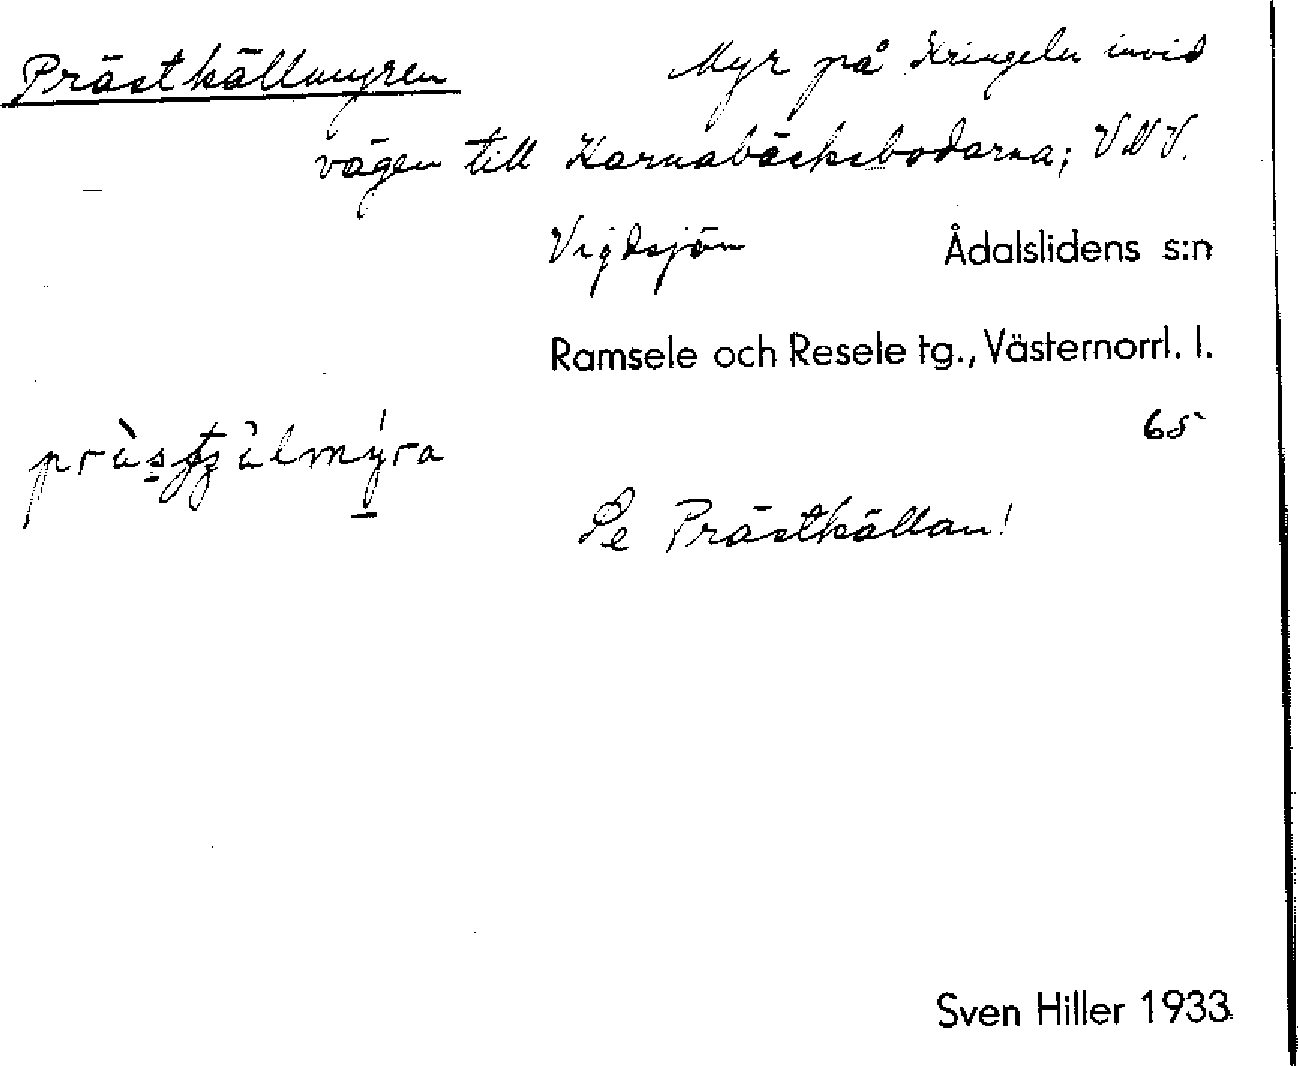 Prästkällmyren Myr på Kringeln invid
vägen till Karnabäcksbodarna; VNV.
Vigdsjön Ådalslidens s:n
Ramsele och Resele tg., Västernorrl. l.
65
Se Prästkällan!
Sven Hiller 1933